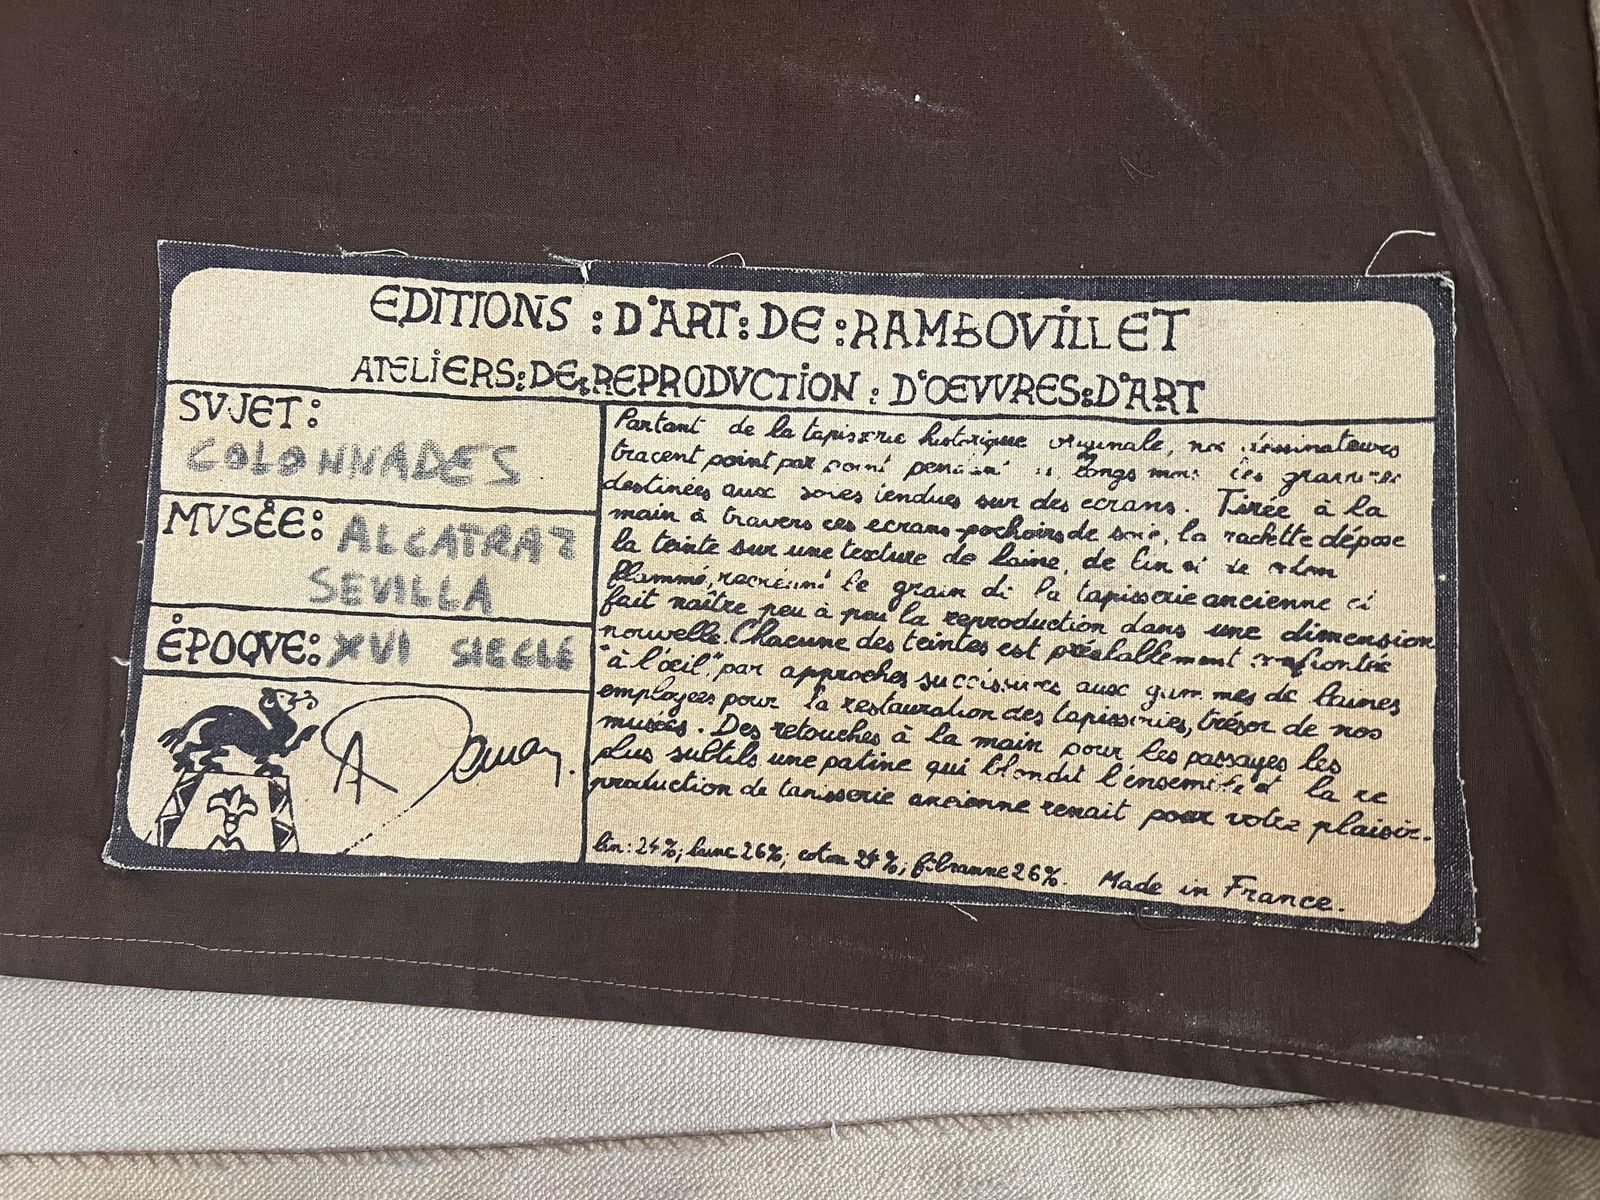 EDITIONS : D'ART : DE : RAMBOVILLET
ATELIERS : DE : REPRODVCTION : D'ŒVVRES : D'ART
SVJET :
COLONNADES
MVSÉE : ALCATRAZ
SEVILLA
ÉPOQVE : XVI SIECLE
Partant de la tapisserie historique originale, nos dessinateurs
tracent point par point pendant longs mois les
destinées aux soies tendues sur des ecrans. Tirée à la
main à travers ces ecrans-pochoirs de soie, la raclette dépose
la teinte sur une texture de laine, de lin et de
flammé, recréant le grain de la tapisserie ancienne et
fait naître peu à peu la reproduction dans une dimension
nouvelle. Chacune des teintes est préalablement
"à l'œil", par approches successives aux gammes de laines
employées pour la restauration des tapisseries, trésor de nos
musées. Des retouches à la main pour les passages les
plus subtils une patine qui blondit l'ensemble et la re
production de tapisserie ancienne renait pour votre plaisir.
lin : 24% ; laine 26% ; coton 24% ; fibranne 26%. Made in France.